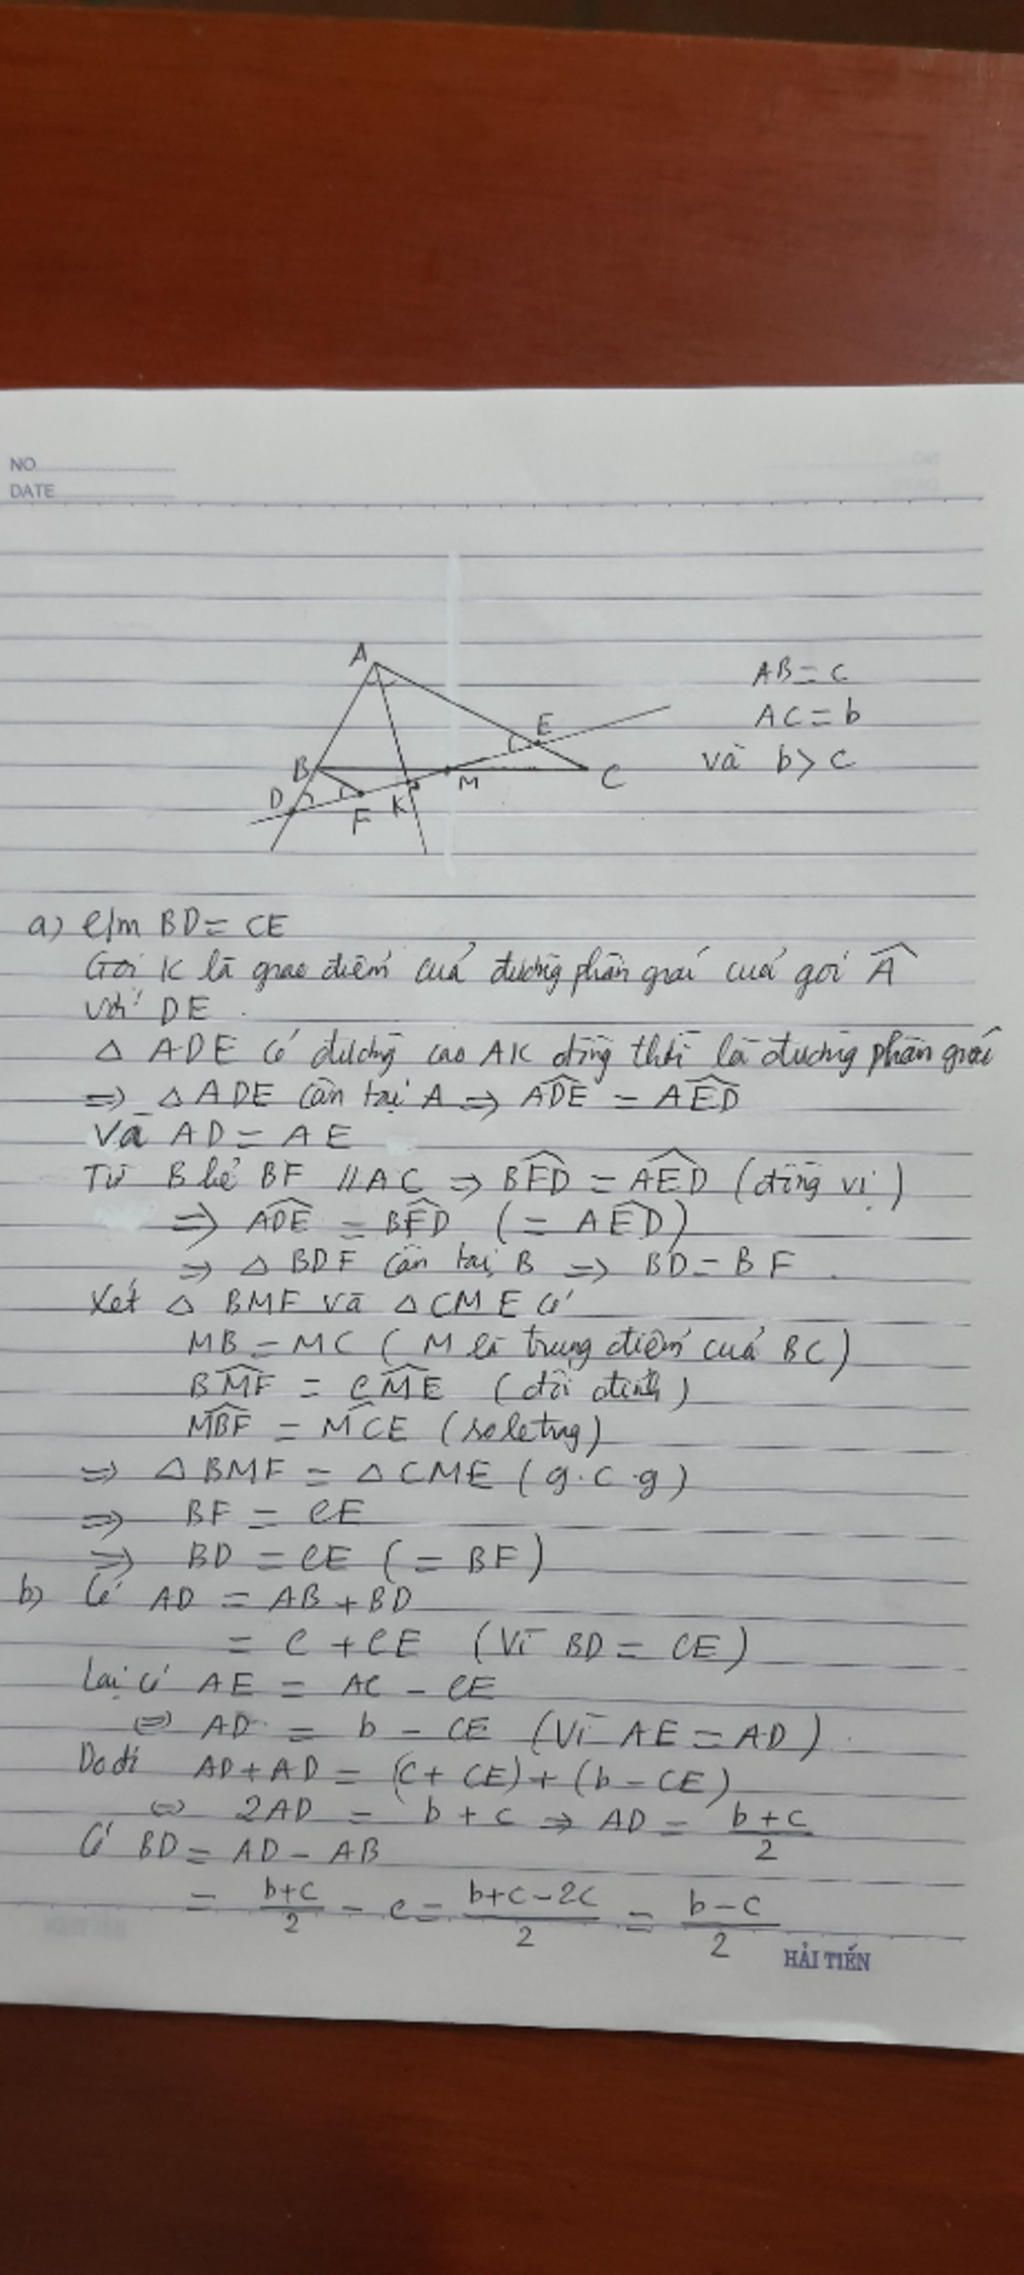 NO
DATE
A
B
C
D
E
F
K
M
AB = c
AC = b
và b > c
a) c/m BD = CE
Gọi K là giao điểm của đường phân giác của góc Â
với DE.
△ ADE có đường cao AK đồng thời là đường phân giác
⇒ △ ADE cân tại A ⇒ ∠ADE = ∠AED
Và AD = AE
Từ B kẻ BF // AC ⇒ ∠BFD = ∠AED (đồng vị)
⇒ ∠ADE = ∠BFD (= ∠AED)
⇒ △ BDF cân tại B ⇒ BD = BF.
Xét △ BMF và △ CME có
MB = MC (M là trung điểm của BC)
∠BMF = ∠CME (đối đỉnh)
∠MBF = ∠MCE (so le trg)
⇒ △ BMF = △ CME (g.c.g)
⇒ BF = CE
⇒ BD = CE (= BF)
b) Có AD = AB + BD
= c + CE (Vì BD = CE)
Lại có AE = AC - CE
⇔ AD = b - CE (Vì AE = AD).
Do đó AD + AD = (c + CE) + (b - CE)
⇔ 2AD = b + c ⇒ AD = (b+c)/2
Có BD = AD - AB
= (b+c)/2 - c = (b+c-2c)/2 = (b-c)/2
HẢI TIẾN